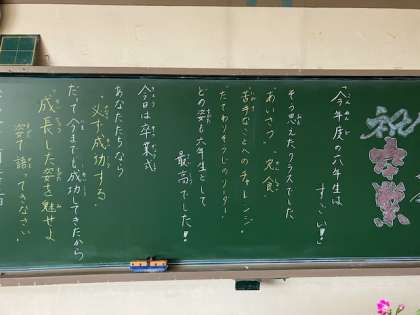 祝
卒業
「今年度の六年生は
すごい!!」
そう思えたクラスでした。
"あいさつ" "完食"
"苦手なことへのチャレンジ"
"たてわりそうじのリーダー"
どの姿も六年生として
最高でした!!
今日は卒業式
あなたたちなら
"必ず成功する"
だって今までも成功してきたから
"成長した姿を魅せよ
姿で語ってきなさい"